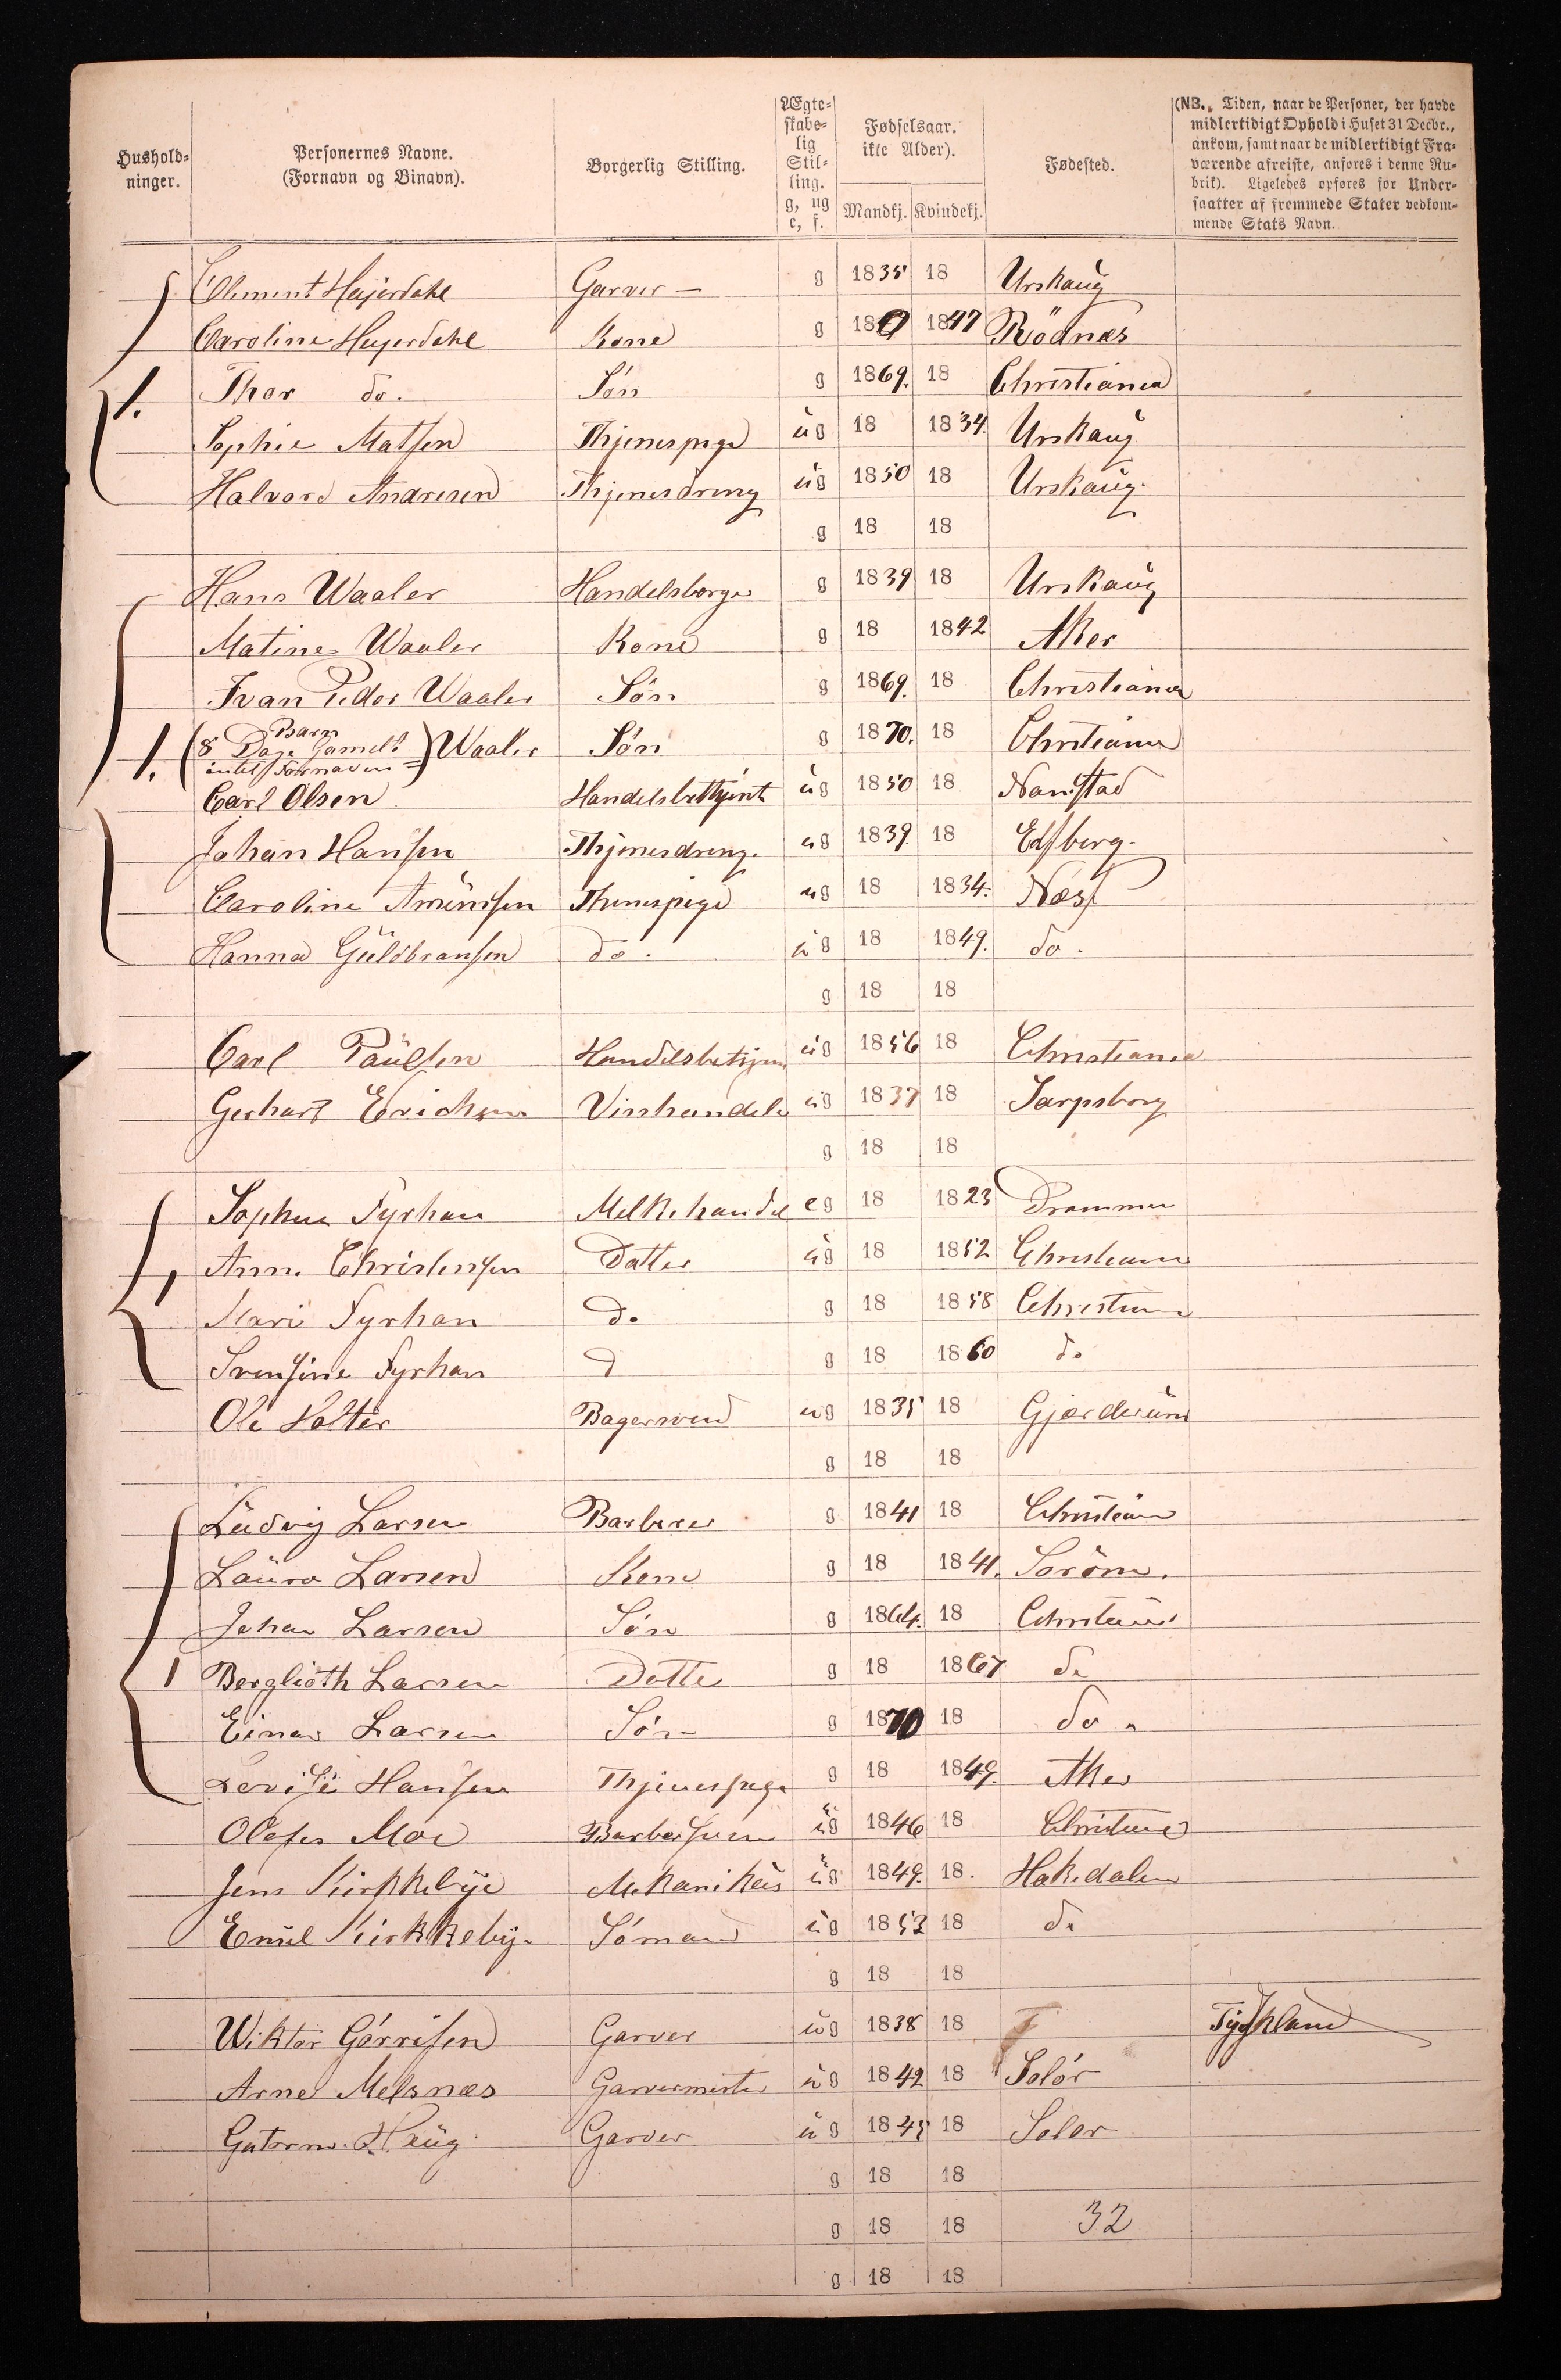 Hushold-
ninger.
Personernes Navne.
(Fornavn og Binavn).
Borgerlig Stilling.
Ægte-
skabe-
lig
Stil-
ling.
g, ug
e, f.
Fødselsaar.
ikke Alder).
Mandkj. Kvindekj.
Fødested.
(NB. Tiden, naar de Personer, der havde
midlertidigt Ophold i Huset 31 Decbr.,
ankom, samt naar de midlertidigt Fra-
værende afreiste, anføres i denne Ru-
brik). Ligeledes opføres for Under-
saatter af fremmede Stater vedkom-
mende Stats Navn.
Clement Heyerdahl Garver — g 1835 18 Urskaug
Caroline Heyerdahl Kone g 180 1847 Rödnæs
1. Thor do. Sön g 1869. 18 Christiania
Sophie Matsen Thjenespige ug 18 1834. Urskaug
Halvord Andresen Thjenesdreng ug 1850 18 Urskaug.
g 18 18
Hans Waaler Handelsborger g 1839 18 Urskaug
Matine Waaler Kone g 18 1842 Aker
Ivan Peder Waaler Sön g 1869. 18 Christiania
1. (8 Barn Dage Gamelt intet Fornavn) Waaler Sön g 1870. 18 Christiania
Carl Olsen Handelsbettjent ug 1850 18 Nannstad
Johan Hansen Thjenesdreng. ug 1839. 18 Edsberg.
Caroline Amundsen Thenespige ug 18 1834. Næss
Hanna Guldbransen do. ug 18 1849. do.
g 18 18
Carl Paulsen Handelsbetjen ug 1856 18 Christiania
Gerhart Erichsen Vinhandel ug 1837 18 Sarpsborg
g 18 18
Sophie Fyrhan Melkehandel eg 18 1823 Drammen
1 Anne Christensen Datter ug 18 1852 Christiania
Mari Fyrhan do g 18 1858 Christiania
Svensine Fyrhan d g 18 1860 do
Ole Holter Bagersvend ug 1835 18 Gjærderum
g 18 18
Ludvig Larsen Barberer g 1841 18 Christiania
Laura Larsen Kone g 18 1841. Soröm.
Johan Larsen Sön g 1864. 18 Christiania
1 Berglioth Larsen Dotte g 18 1867 do
Einar Larsen Sön g 1870 18 do
Lovise Hansen Thjenespige g 18 1849. Aker
Olefes Moe Barbersven ug 1846 18 Christiania
Jens Kirkkebye Mekanikus ug 1849. 18. Hakedalen
Emil Kirkkeby Sömand ug 1853 18 do
g 18 18
Wiktor Görrisen Garver ug 1838 18 T Tyskland
Arne Melsnæs Garvermester ug 1842 18 Solör
Gutorm Haug Garver ug 1845 18 Solör
g 18 18
g 18 18 32
g 18 18